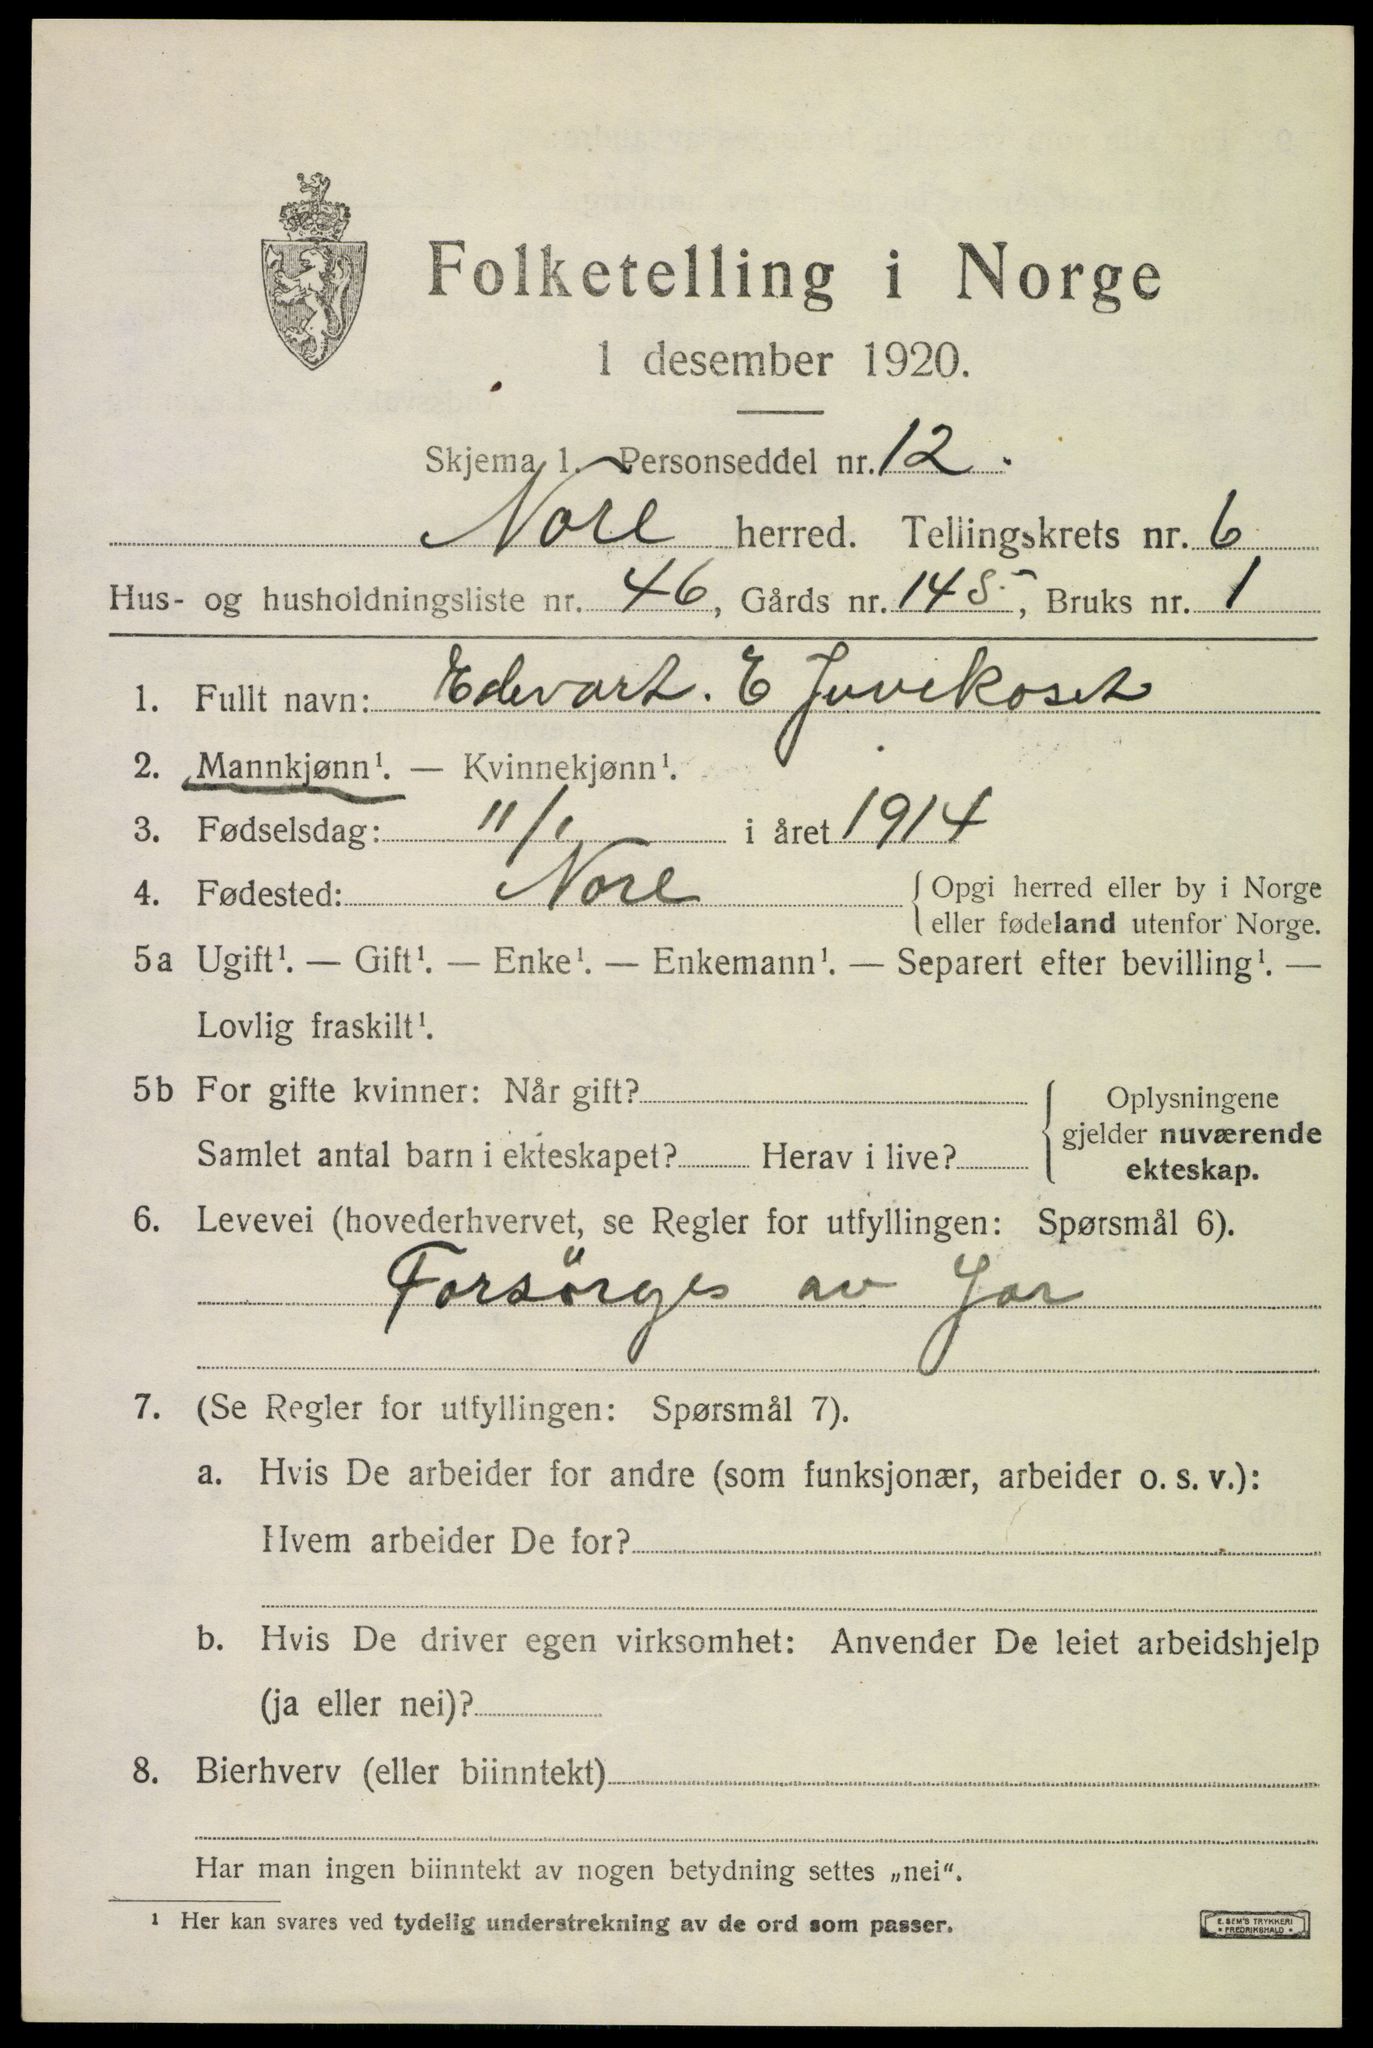 Folketelling i Norge
1 desember 1920.
Skjema 1. Personseddel nr. 12.
Nore herred. Tellingskrets nr. 6
Hus- og husholdningsliste nr. 46, Gårds nr. 145, Bruks nr. 1
1. Fullt navn: Edevart. E Juvekoset
2. Mannkjønn¹. — Kvinnekjønn¹.
3. Fødselsdag: 11/1 i året 1914
4. Fødested: Nore { Opgi herred eller by i Norge
eller fødeland utenfor Norge.
5a Ugift¹. — Gift¹. — Enke¹. — Enkemann¹. — Separert efter bevilling¹. —
Lovlig fraskilt¹.
5b For gifte kvinner: Når gift?
Samlet antal barn i ekteskapet? Herav i live?
Oplysningene
gjelder nuværende
ekteskap.
6. Levevei (hovederhvervet, se Regler for utfyllingen: Spørsmål 6).
Forsörges av far
7. (Se Regler for utfyllingen: Spørsmål 7).
a. Hvis De arbeider for andre (som funksjonær, arbeider o. s. v.):
Hvem arbeider De for?
b. Hvis De driver egen virksomhet: Anvender De leiet arbeidshjelp
(ja eller nei)?
8. Bierhverv (eller biinntekt)
Har man ingen biinntekt av nogen betydning settes „nei“.
¹ Her kan svares ved tydelig understrekning av de ord som passer.
E. SEM'S TRYKKERI
• FREDRIKSHALD •